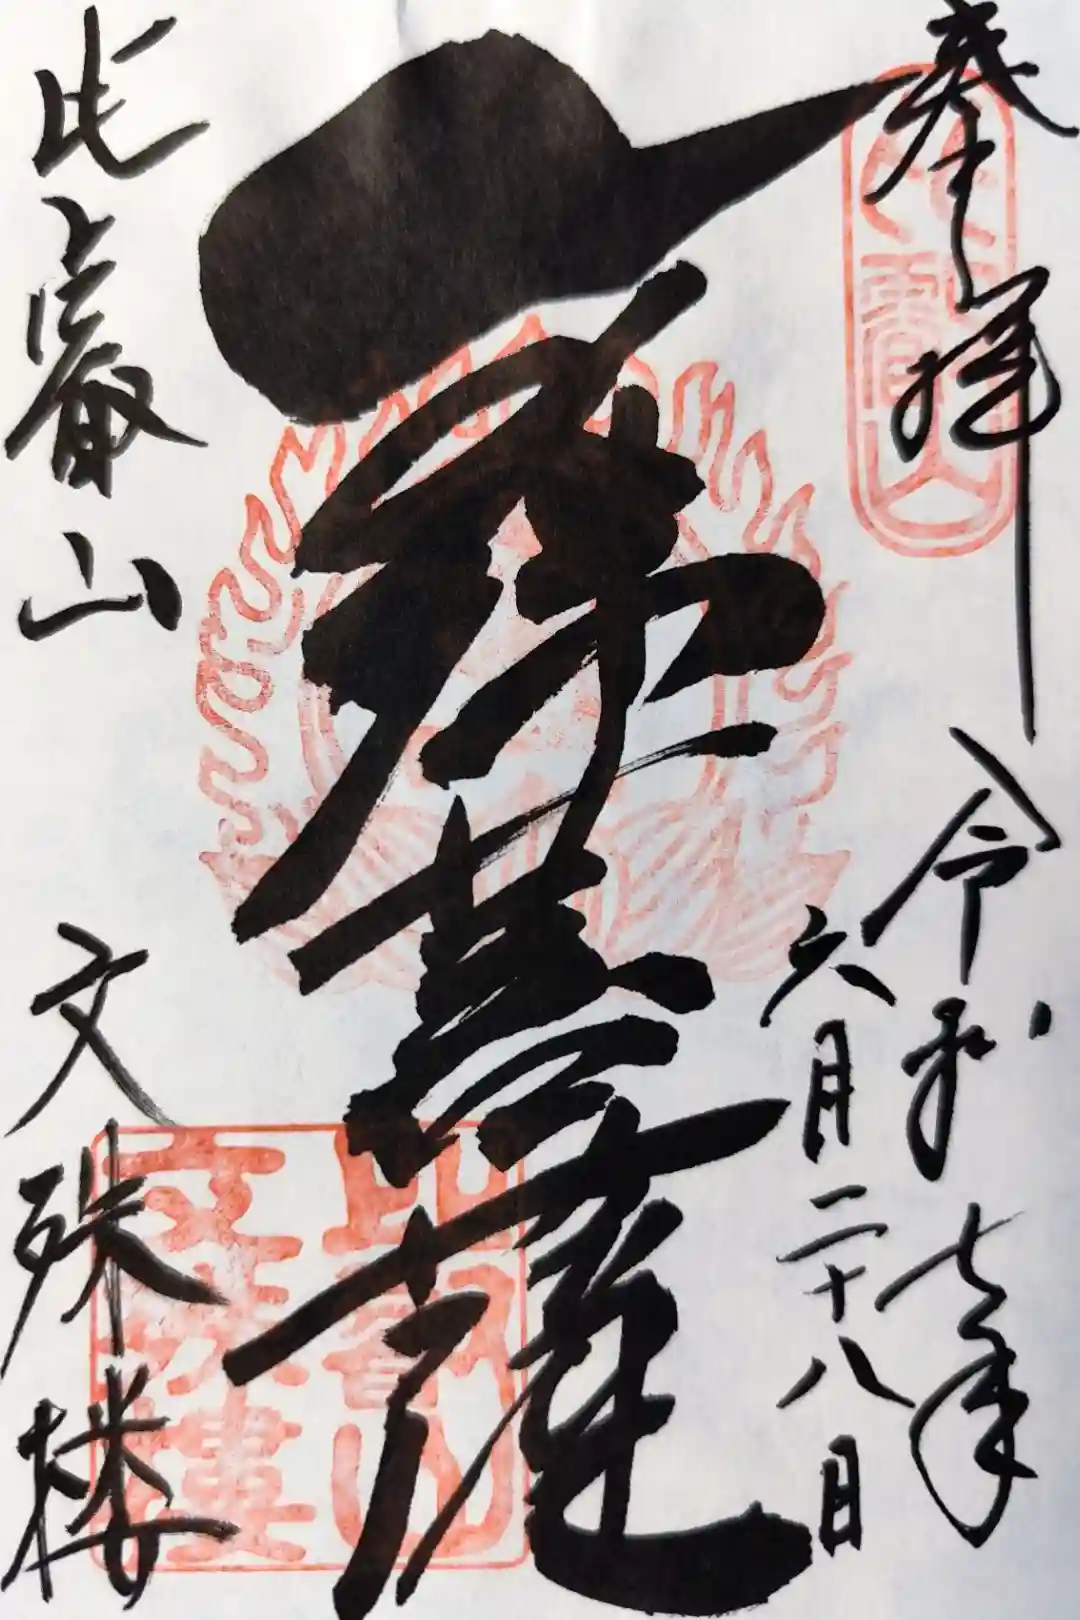 奉拝
令和七年
六月二十八日
文殊菩薩
比叡山 文殊楼
比叡山
比叡山
文殊樓